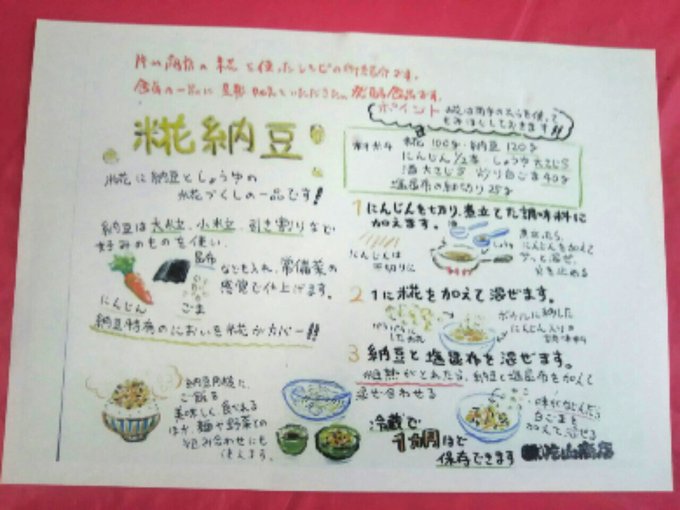 糀納豆
糀に納豆としょうゆの
糀づくしの一品です!
納豆は大粒、小粒、引き割りなど
好みのものを使い、
昆布
なども入れ、常備菜の
感覚で仕上げます。
にんじん
ごま
納豆特有のにおいを糀がカバー!!
納豆同様に、
ご飯を
美味しく食べれる
ほか、麺や野菜との
組み合わせにも
使えます。
ポイント
材料 糀 100g・納豆 120g
にんじん 1/2本・しょうゆ 大さじ5
酒 大さじ5 炒り白ごま 40g
塩昆布の細切り 25g
1 にんじんを切り、煮立てた調味料に
加えます。
酒
しょうゆ
煮立ったら、
にんじんを加えて
サッと混ぜ、
火を止める
にんじんは
千切りに
2 1に糀を加えて混ぜます。
ボウルに移した
にんじん入りの
調味料
3 納豆と塩昆布を混ぜます。
粗熱がとれたら、納豆と塩昆布を加えて
混ぜ合わせる
白ごまを
加えて混ぜる
冷蔵で
1カ月ほど
保存できます